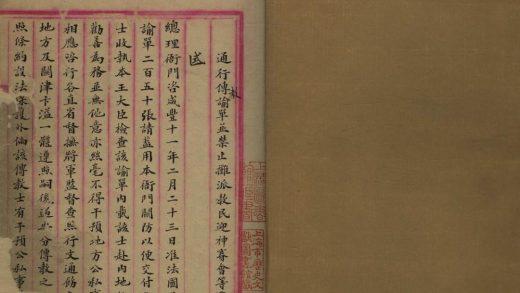 通行傳諭單並禁止攤派教民迎神賽會等
總理衙門咨咸豐十一年二月二十三日准法國
諭單二百五十張請盖用本衙門關防以便交付
士收執本王大臣檢查該諭單內載該士赴內地
勸善爲務並無他意亦絲毫不得干預地方公私
相應咨行各直省督撫將軍監督查照行文通飭
地方及關津卡一體遵照嗣後分傳教之
照條約設法保護外倘該傳教士有干預公私事
上海市歷史文
獻圖書館藏